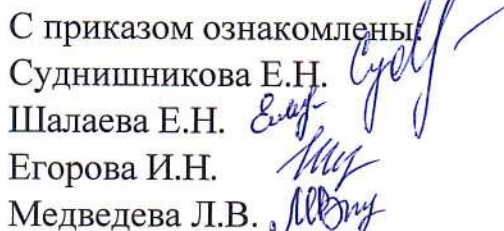 С приказом ознакомлены:
Суднишникова Е.Н.
Шалаева Е.Н.
Егорова И.Н.
Медведева Л.В.